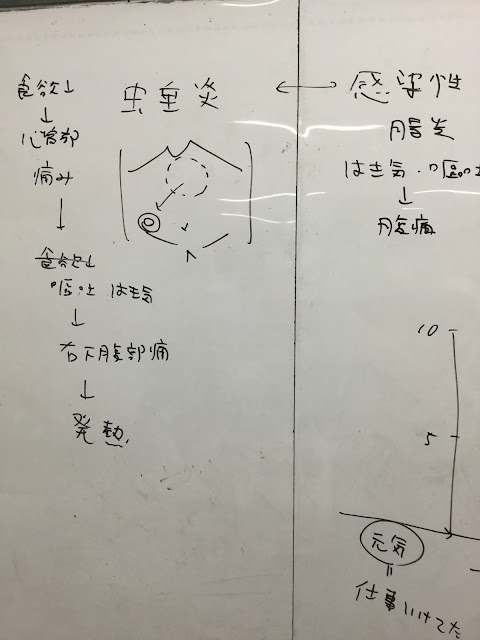 虫垂炎
食欲↓
↓
心窩部
痛み
↓
食欲↓
嘔吐 はき気
↓
右下腹部痛
↓
発熱
↔
感染性
腸炎
はき気・嘔吐
↓
腹痛
10
5
元気
=
仕事いけてた